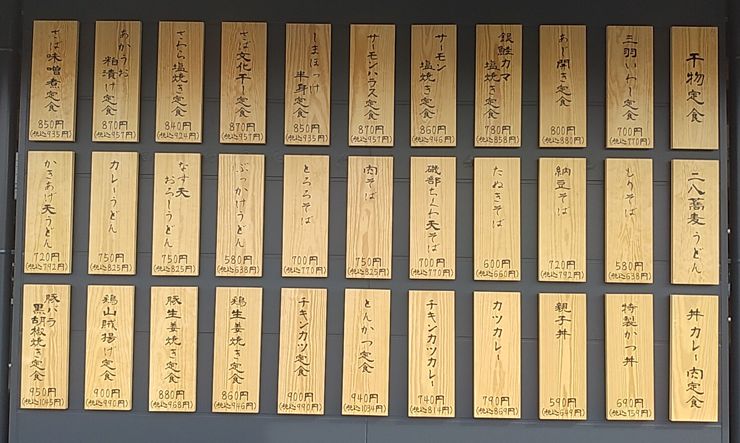 干物定食
三羽いわし定食
700円
(税込770円)
あじ開き定食
800円
(税込880円)
銀鮭カマ
塩焼き定食
780円
(税込858円)
サーモン
塩焼き定食
860円
(税込946円)
サーモンハラス定食
870円
(税込957円)
しまほっけ
半身定食
850円
(税込935円)
さば文化干し定食
870円
(税込957円)
さわら塩焼き定食
840円
(税込924円)
あかうお
粕漬け定食
870円
(税込957円)
さば味噌煮定食
850円
(税込935円)
二八蕎麦うどん
もりそば
580円
(税込638円)
納豆そば
720円
(税込792円)
たぬきそば
600円
(税込660円)
磯部ちくわ天そば
700円
(税込770円)
肉そば
750円
(税込825円)
とろろそば
700円
(税込770円)
ぶっかけうどん
580円
(税込638円)
なす天
おろしうどん
750円
(税込825円)
カレーうどん
750円
(税込825円)
かきあげ天うどん
720円
(税込792円)
丼カレー肉定食
特製かつ丼
690円
(税込759円)
親子丼
590円
(税込649円)
カツカレー
790円
(税込869円)
チキンカツカレー
740円
(税込814円)
とんかつ定食
940円
(税込1034円)
チキンカツ定食
900円
(税込990円)
鶏生姜焼き定食
860円
(税込946円)
豚生姜焼き定食
880円
(税込968円)
鶏山賊揚げ定食
900円
(税込990円)
豚バラ
黒胡椒焼き定食
950円
(税込1045円)